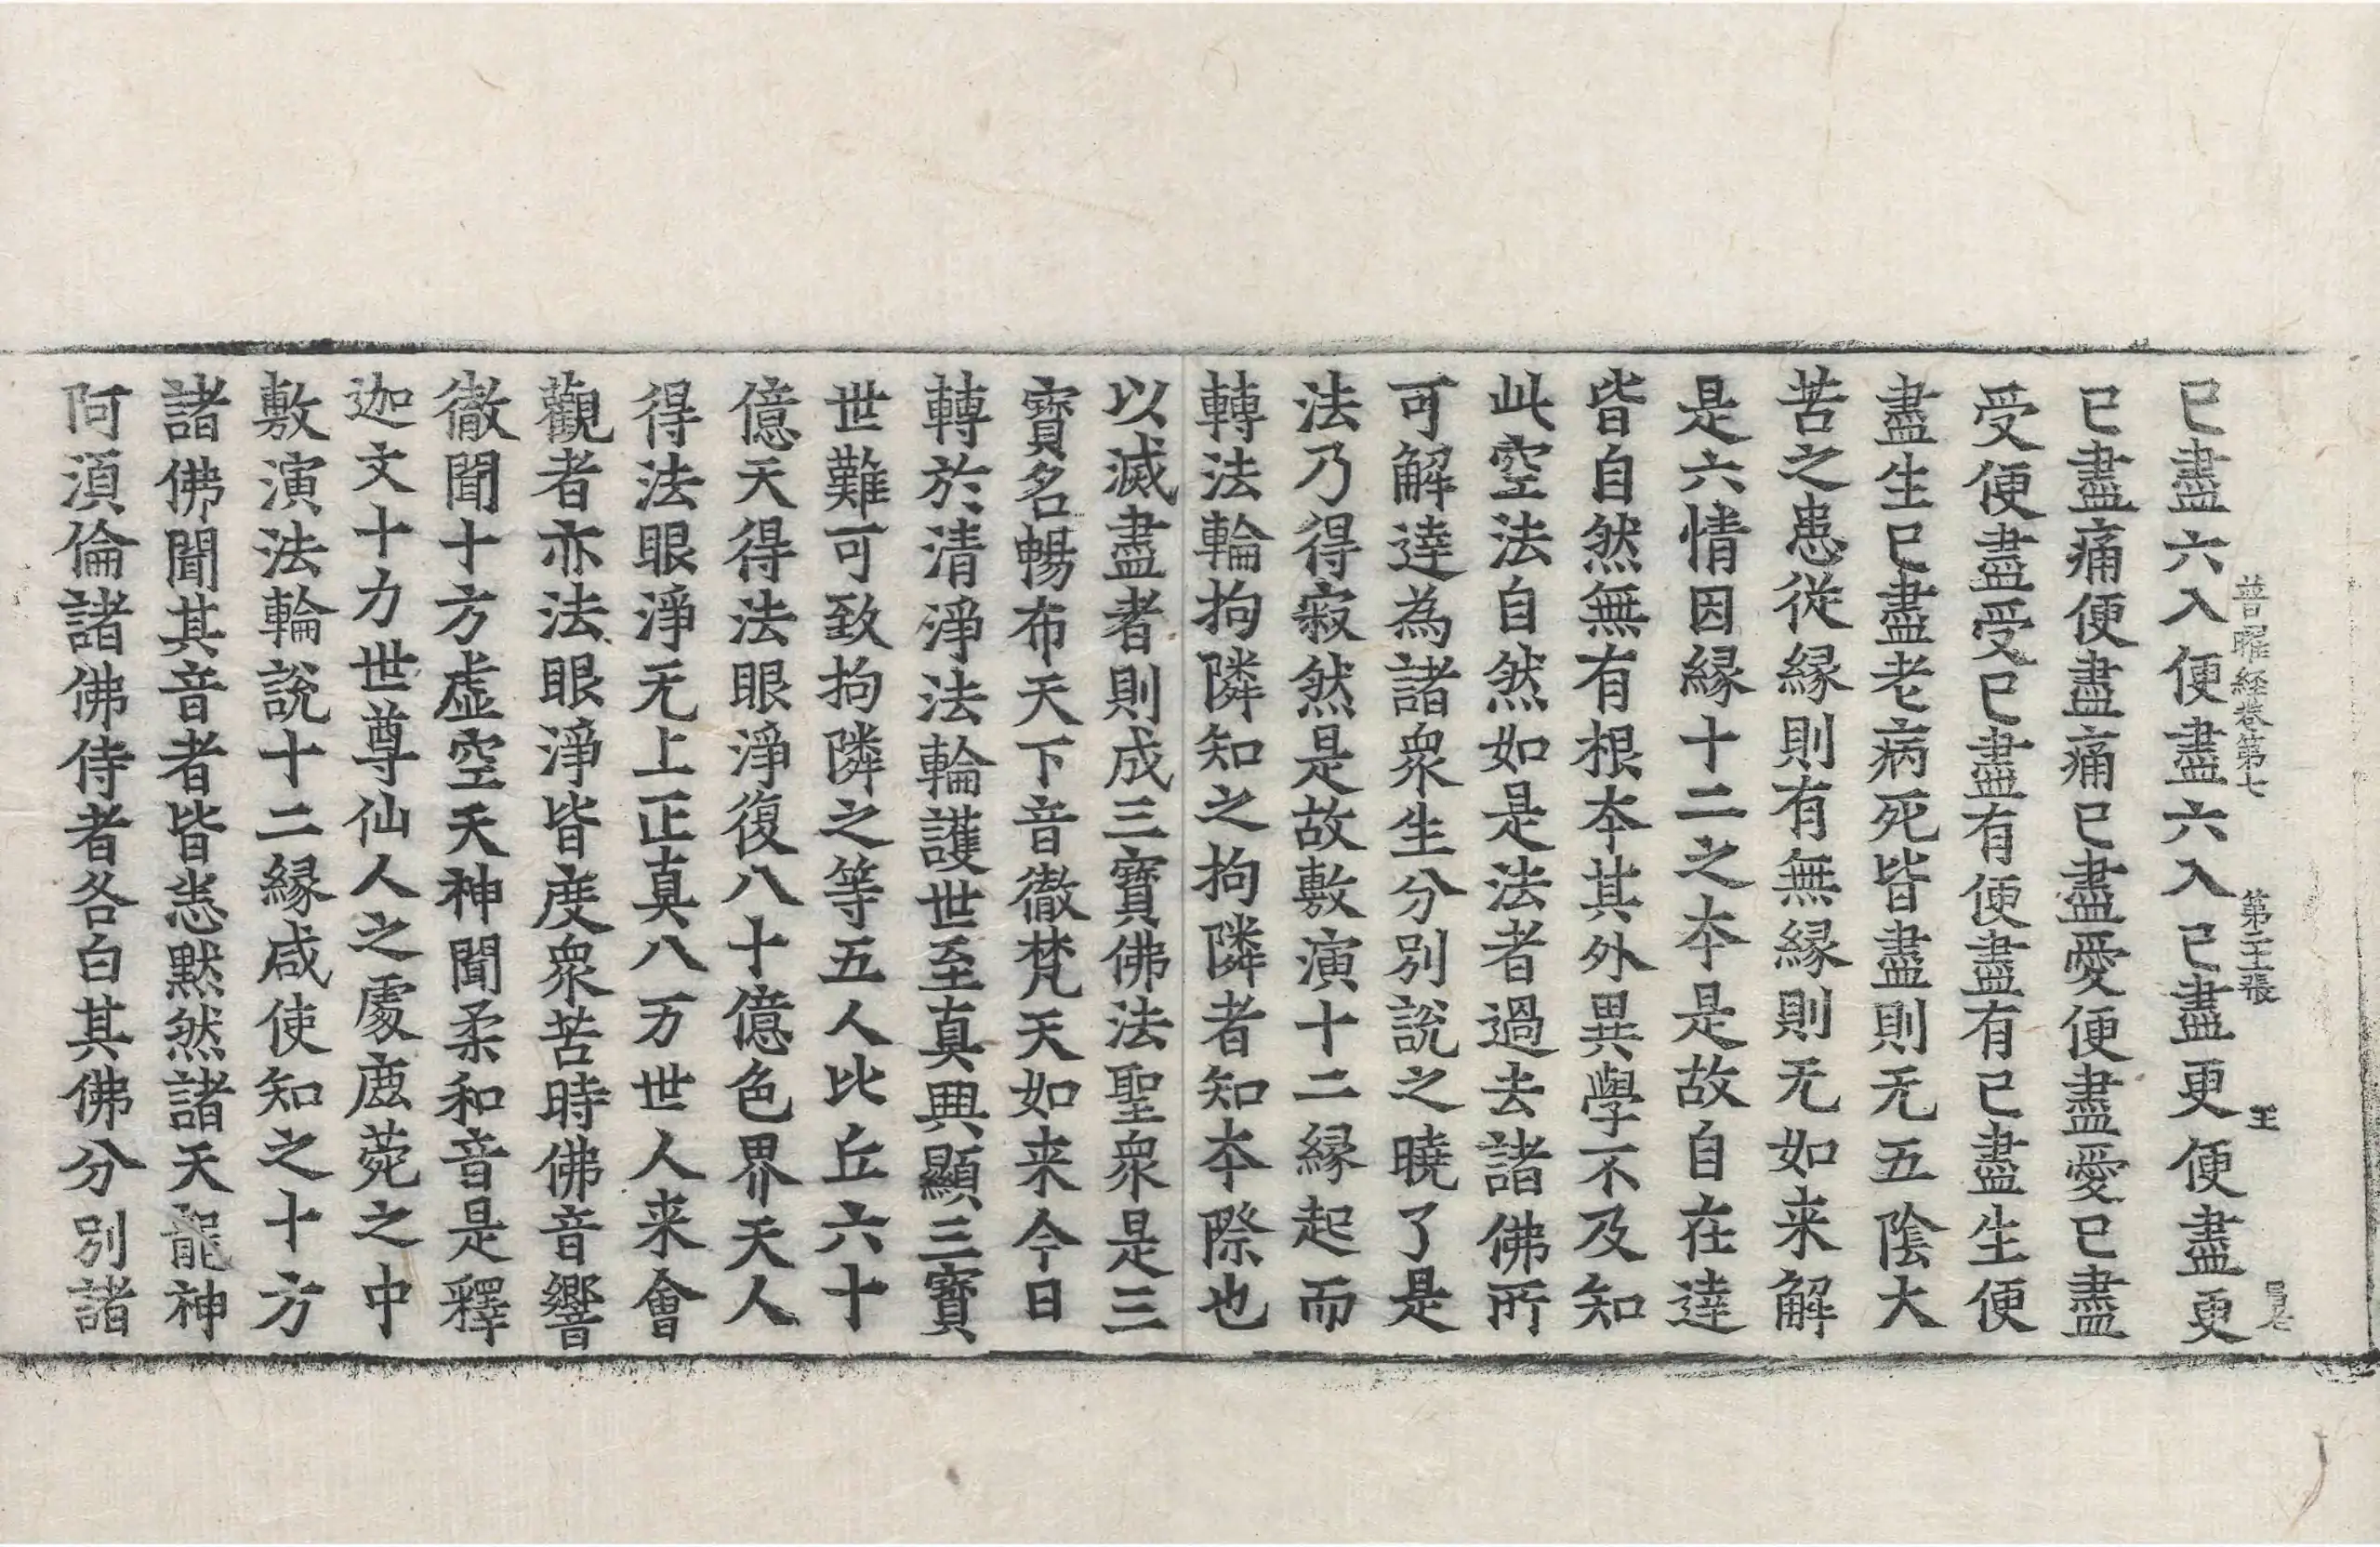 普曜經卷第七 第二十張 王
已盡六入便盡六入已盡更便盡更
已盡痛便盡痛已盡愛便盡愛已盡
受便盡受已盡有便盡有已盡生便
盡生已盡老病死皆盡則无五陰大
苦之患從縁則有無縁則无如来解
是六情因縁十二之本是故自在達
皆自然無有根本其外異學不及知
此空法自然如是法者過去諸佛所
可解達為諸衆生分別說之曉了是
法乃得寂然是故敷演十二縁起而
轉法輪拘隣知之拘隣者知本際也
以滅盡者則成三寶佛法聖衆是三
寶名暢布天下音徹梵天如来今日
轉於清淨法輪護世至真興顯三寶
世難可致拘隣之等五人比丘六十
億天得法眼淨復八十億色界天人
得法眼淨无上正真八万世人来會
觀者亦法眼淨皆度衆苦時佛音響
徹聞十方虚空天神聞柔和音是釋
迦文十力世尊仙人之處鹿菀之中
敷演法輪說十二縁咸使知之十方
諸佛聞其音者皆悉黙然諸天龍神
阿湏倫諸佛侍者各白其佛分別諸